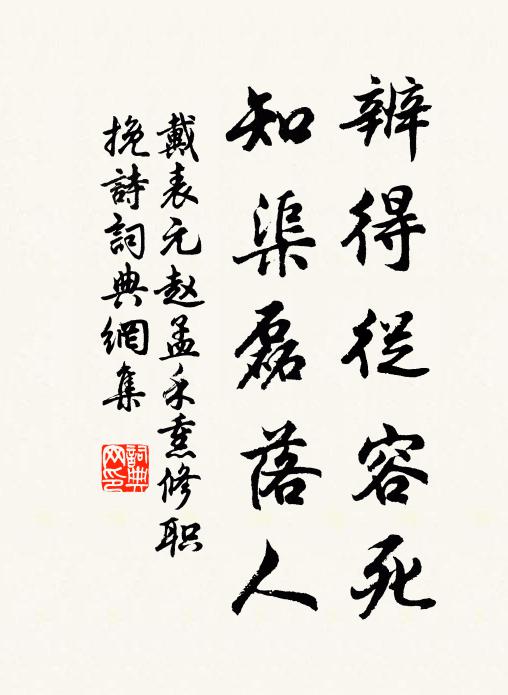 辨得從容死
知渠磊落人
戴表元赵孟禾熹修职
挽詩詞典網集
詞典网印